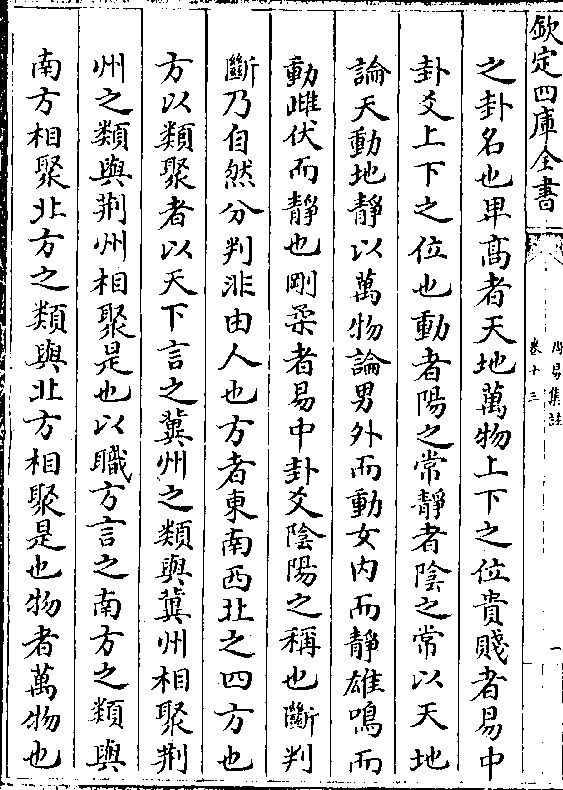 欽定四庫全書
周易集註
卷十三
一
之卦名也卑髙者天地萬物上下之位貴賤者易中
卦爻上下之位也動者陽之常靜者陰之常以天地
論天動地靜以萬物論男外而動女内而靜雄鳴而
動雌伏而靜也剛柔者易中卦爻陰陽之稱也斷判
斷乃自然分判非由人也方者東南西北之四方也
方以類聚者以天下言之冀州之類與冀州相聚荆
州之類與荆州相聚是也以職方言之南方之類與
南方相聚北方之類與北方相聚是也物者萬物也